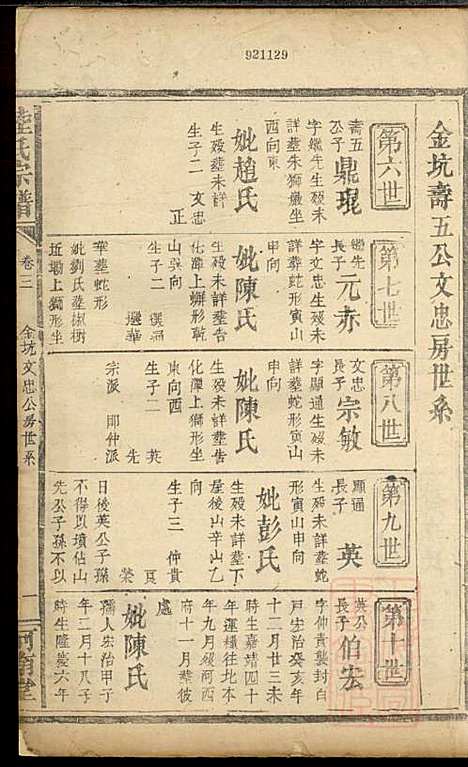 921129
金坑壽五公文忠房世系
第六世
壽五
公子
鼎琨
字繼先生殁未
詳塟朱獅巖坐
西向東
妣趙氏
生殁塟未詳
生子二 文忠
正
第七世
繼先
長子
元赤
字文忠生殁未
詳葬蛇形寅山
申向
妣陳氏
生殁未詳塟告
化潭上蠏形乾
山巽向
生子二
顯通
華塟蛇形
妣劉氏塟椒樹
近塲上獅形坐
第八世
文忠
長子
宗敏
字顯通生殁未
詳塟蛇形寅山
申向
妣陳氏
生殁未詳塟告
化潭上獅形坐
東向西
生子二 英
先
宗派 即仲派
第九世
顯通
長子
英
生殁未詳塟蛇
形寅山申向
妣彭氏
生殁未詳塟下
屋後山辛山乙
向
生子三 仲貴
日後英公子孫
不得以墳佔山
先公子孫不以
第十世
英公
長子
伯宏
字仲貴襲封白
戶宏治癸亥年
十二月廿三未
時生嘉靖四十
年運糧往北本
年九月緩河西
府十一月塟彼
處
妣陳氏
孺人宏治甲子
年二月十八子
時生隆慶六年
氏宗譜
卷二
金坑文忠公房世系
一
河南堂